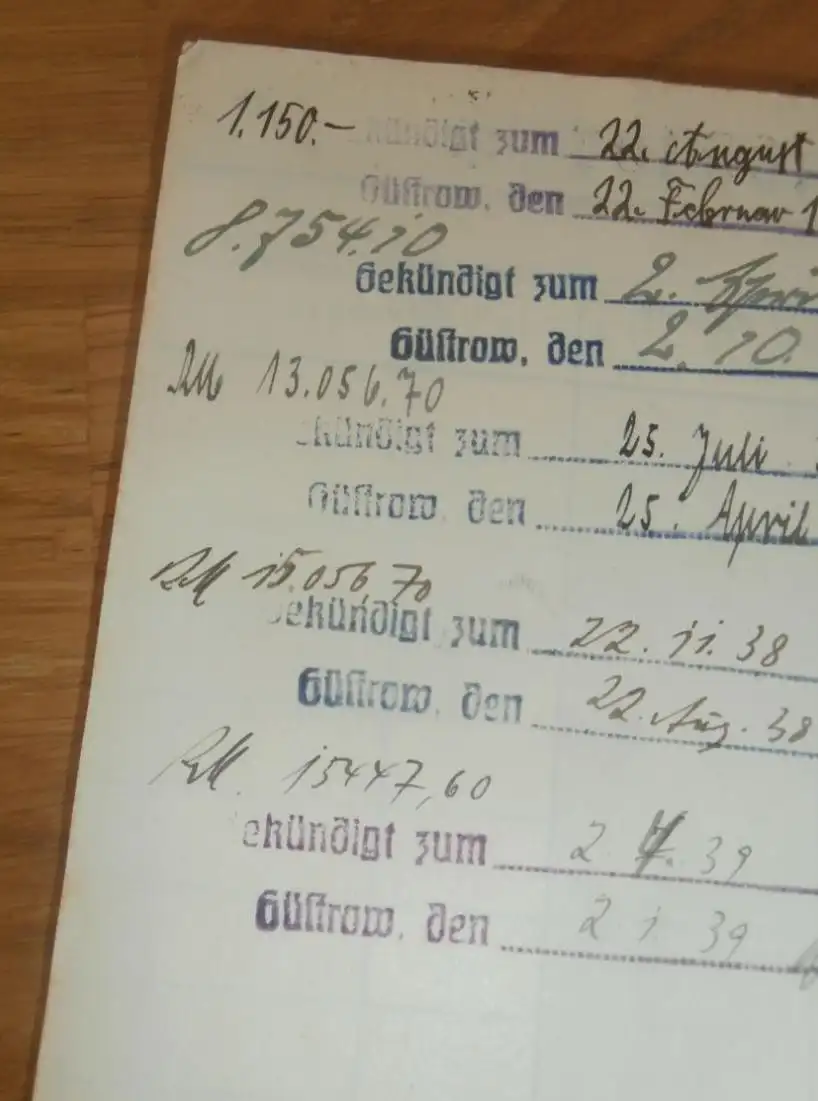 1.150.– kündigt zum 22. August
Güstrow, den 22. Februar 1
8.754.10
Gekündigt zum 2. Apri
Güstrow, den 2. 10.
RM 13.056.70
kündigt zum 25. Juli
Güstrow, den 25. April
RM 15.056,70
ekündigt zum 22. 11. 38
Güstrow, den 22. Aug. 38
RM. 15447,60
ekündigt zum 2 39
Güstrow, den 2 1 39